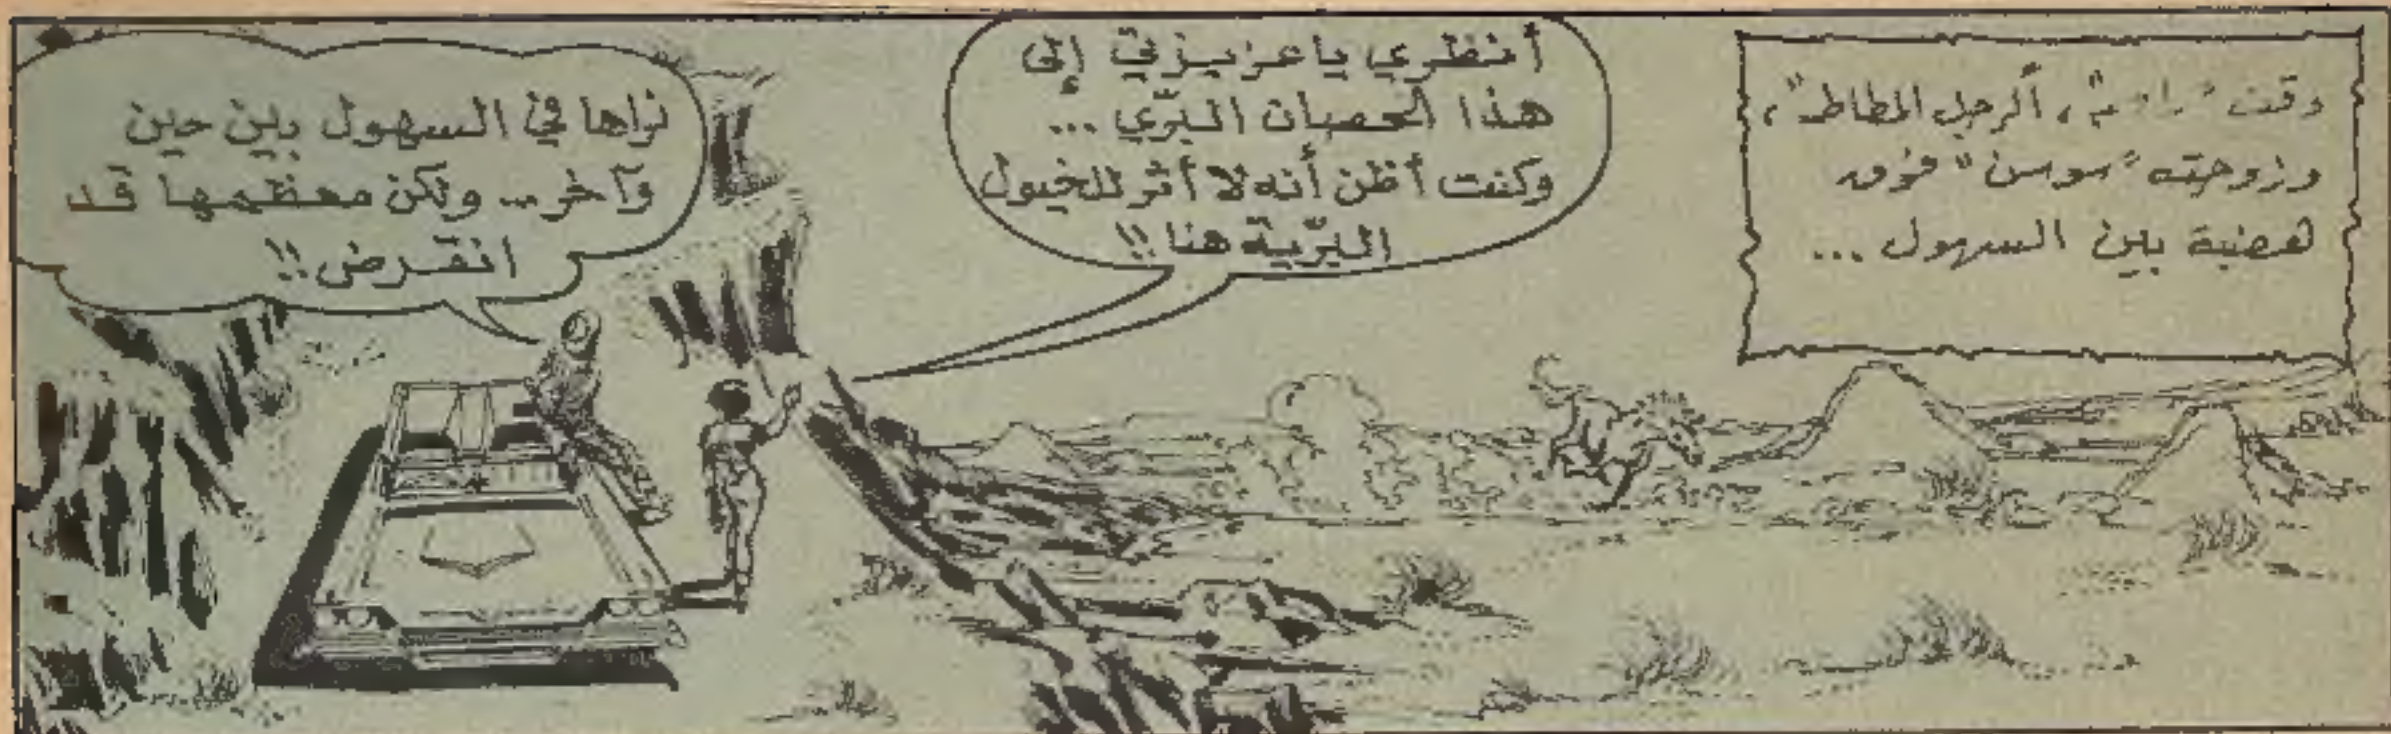 وقف "را م"، ألرجل المطاط"،
وزوجته "سوسن" فوق
هضبة بين السهول ...
أنظري ياعزيزتي إلى
هذا الحصان البرّي ...
وكنت أظن أنه لا أثر للخيول
البرّية هنا !!
نراها في السهول بين حين
وآخر.. ولكن معظمها قد
انقرض !!